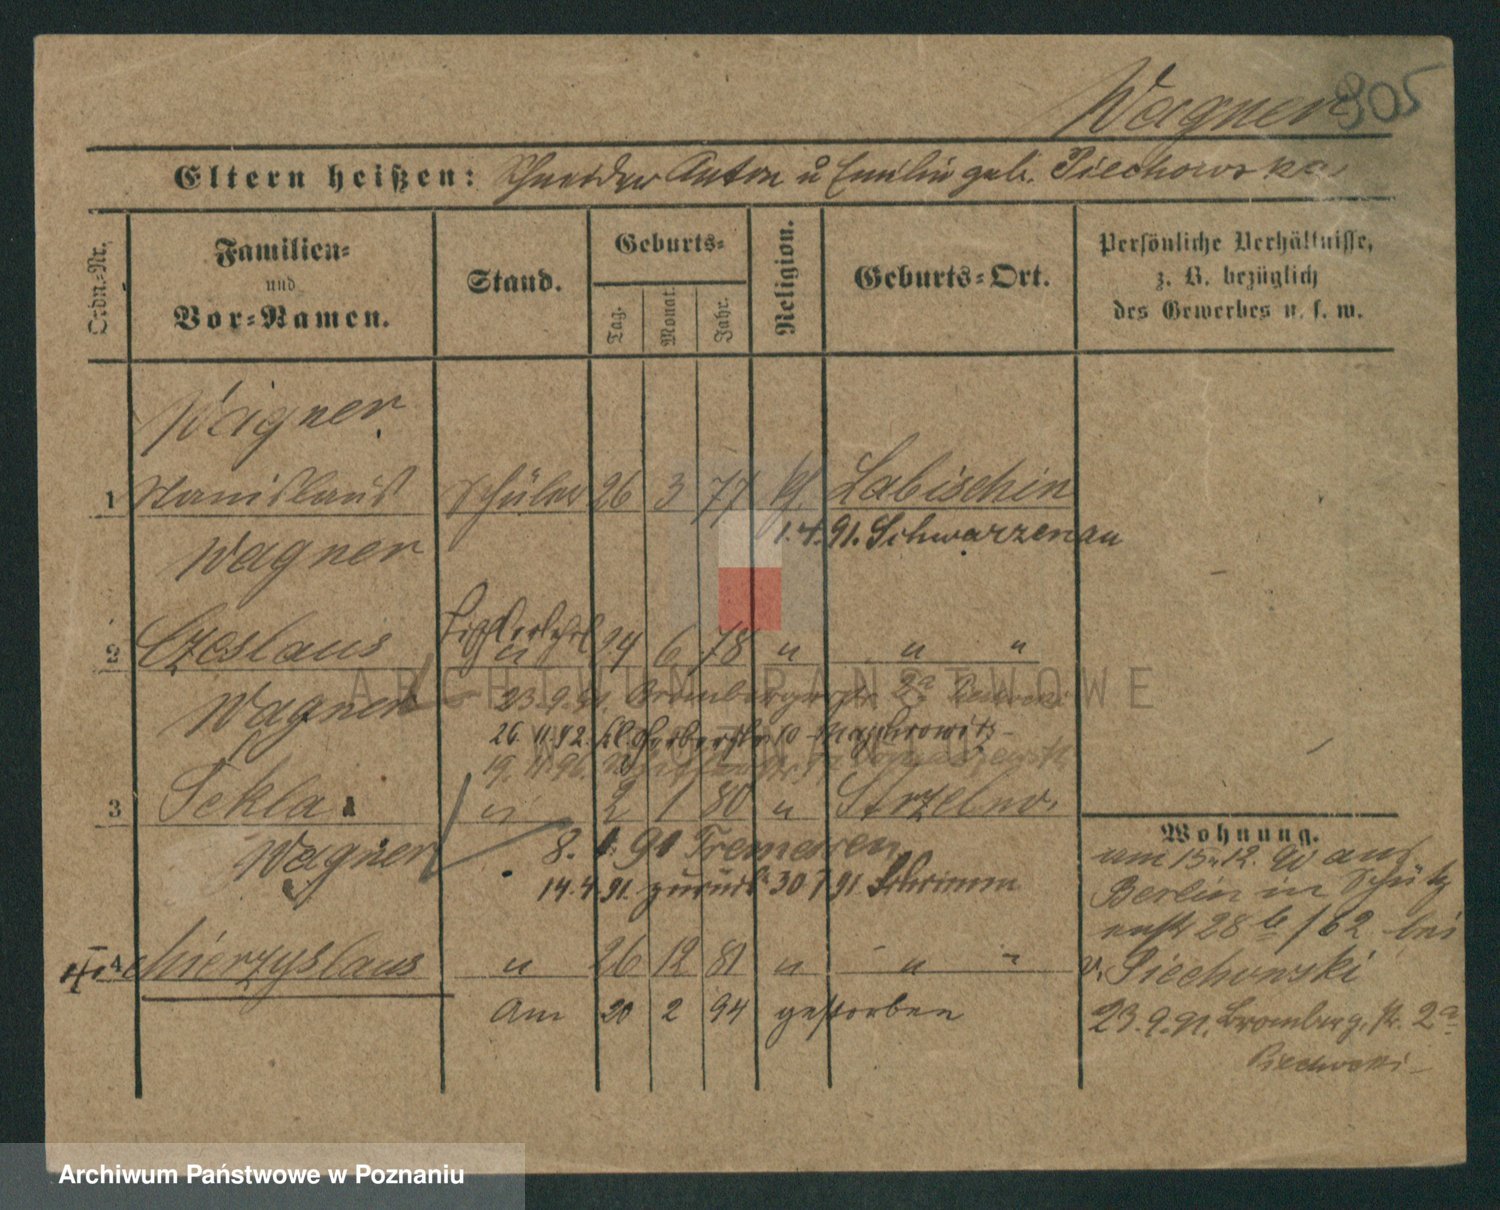 Wagner 305
Eltern heißen: Schneider Anton u Emilie geb. Piechowska
Ordn.-Nr. Familien- und Vor-Namen. Stand. Geburts- Tag. Monat. Jahr. Religion. Geburts-Ort. Persönliche Verhältnisse, z. B. bezüglich des Gewerbes u. s. w.
Wagner
1 Stanislaus Schüler 26 3 77 k. Labischin
1.4.91. Schwarzenau
Wagner
2 Czeslaus 24 6 78 " " "
ARCHIWUM PAŃSTWOWE
Wagner 23.9.91. Brombergerstr. 2a
26.11.92. kl. Gerberstr. 10
W POZNANIU
19.11.96.
3 Tekla " 2 1 80 " Strzelno
Wagner 8. 1. 91 Tremessen
14.4.91. zurück 30 7 91. Schrimm
4 Mierzyslaus " 26 12 81 " " "
Am 20 2 94 gestorben
Wohnung.
am 15.12. 90 aus
Berlin in Schütz
enstr 28 b / 62 bei
v. Piechowski
23.9.91. Bromberg. str. 2a
Piechowski
Archiwum Państwowe w Poznaniu